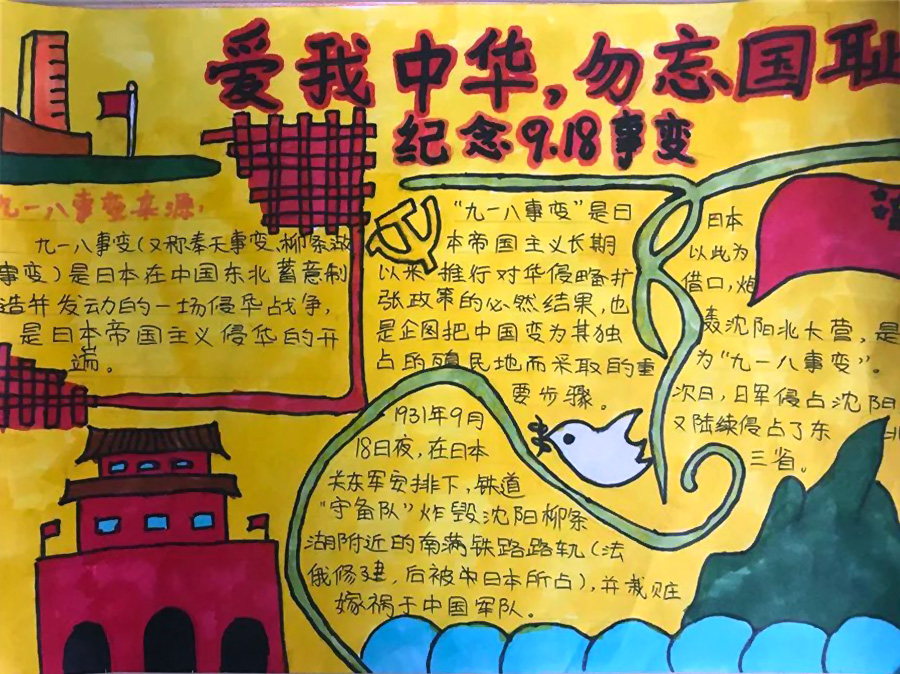 爱我中华,勿忘国耻
纪念9.18事变
九一八事变来源:
九一八事变(又称奉天事变、柳条湖
事变)是日本在中国东北蓄意制
造并发动的一场侵华战争,
是日本帝国主义侵华的开
端。
“九一八事变”是日
本帝国主义长期
以来推行对华侵略扩
张政策的必然结果,也
是企图把中国变为其独
占的殖民地而采取的重
要步骤。
1931年9月
18日夜,在日本
关东军安排下,铁道
“守备队”炸毁沈阳柳条
湖附近的南满铁路路轨(法
俄修建,后被日本所占),并栽赃
嫁祸于中国军队。
日本
以此为
借口,炮
轰沈阳北大营,是
为“九一八事变”。
次日,日军侵占沈阳
又陆续侵占了东北
三省。